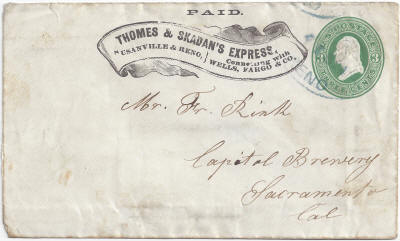 PAID.
THOMES & SKADAN'S EXPRESS,
SUSANVILLE & RENO,
Connecting with
WELLS, FARGO & CO.
U.S. POSTAGE
3 3
THREE CENTS
RENO
Mr. Fr. Rink
Capitol Brewery
Sacramento
Cal